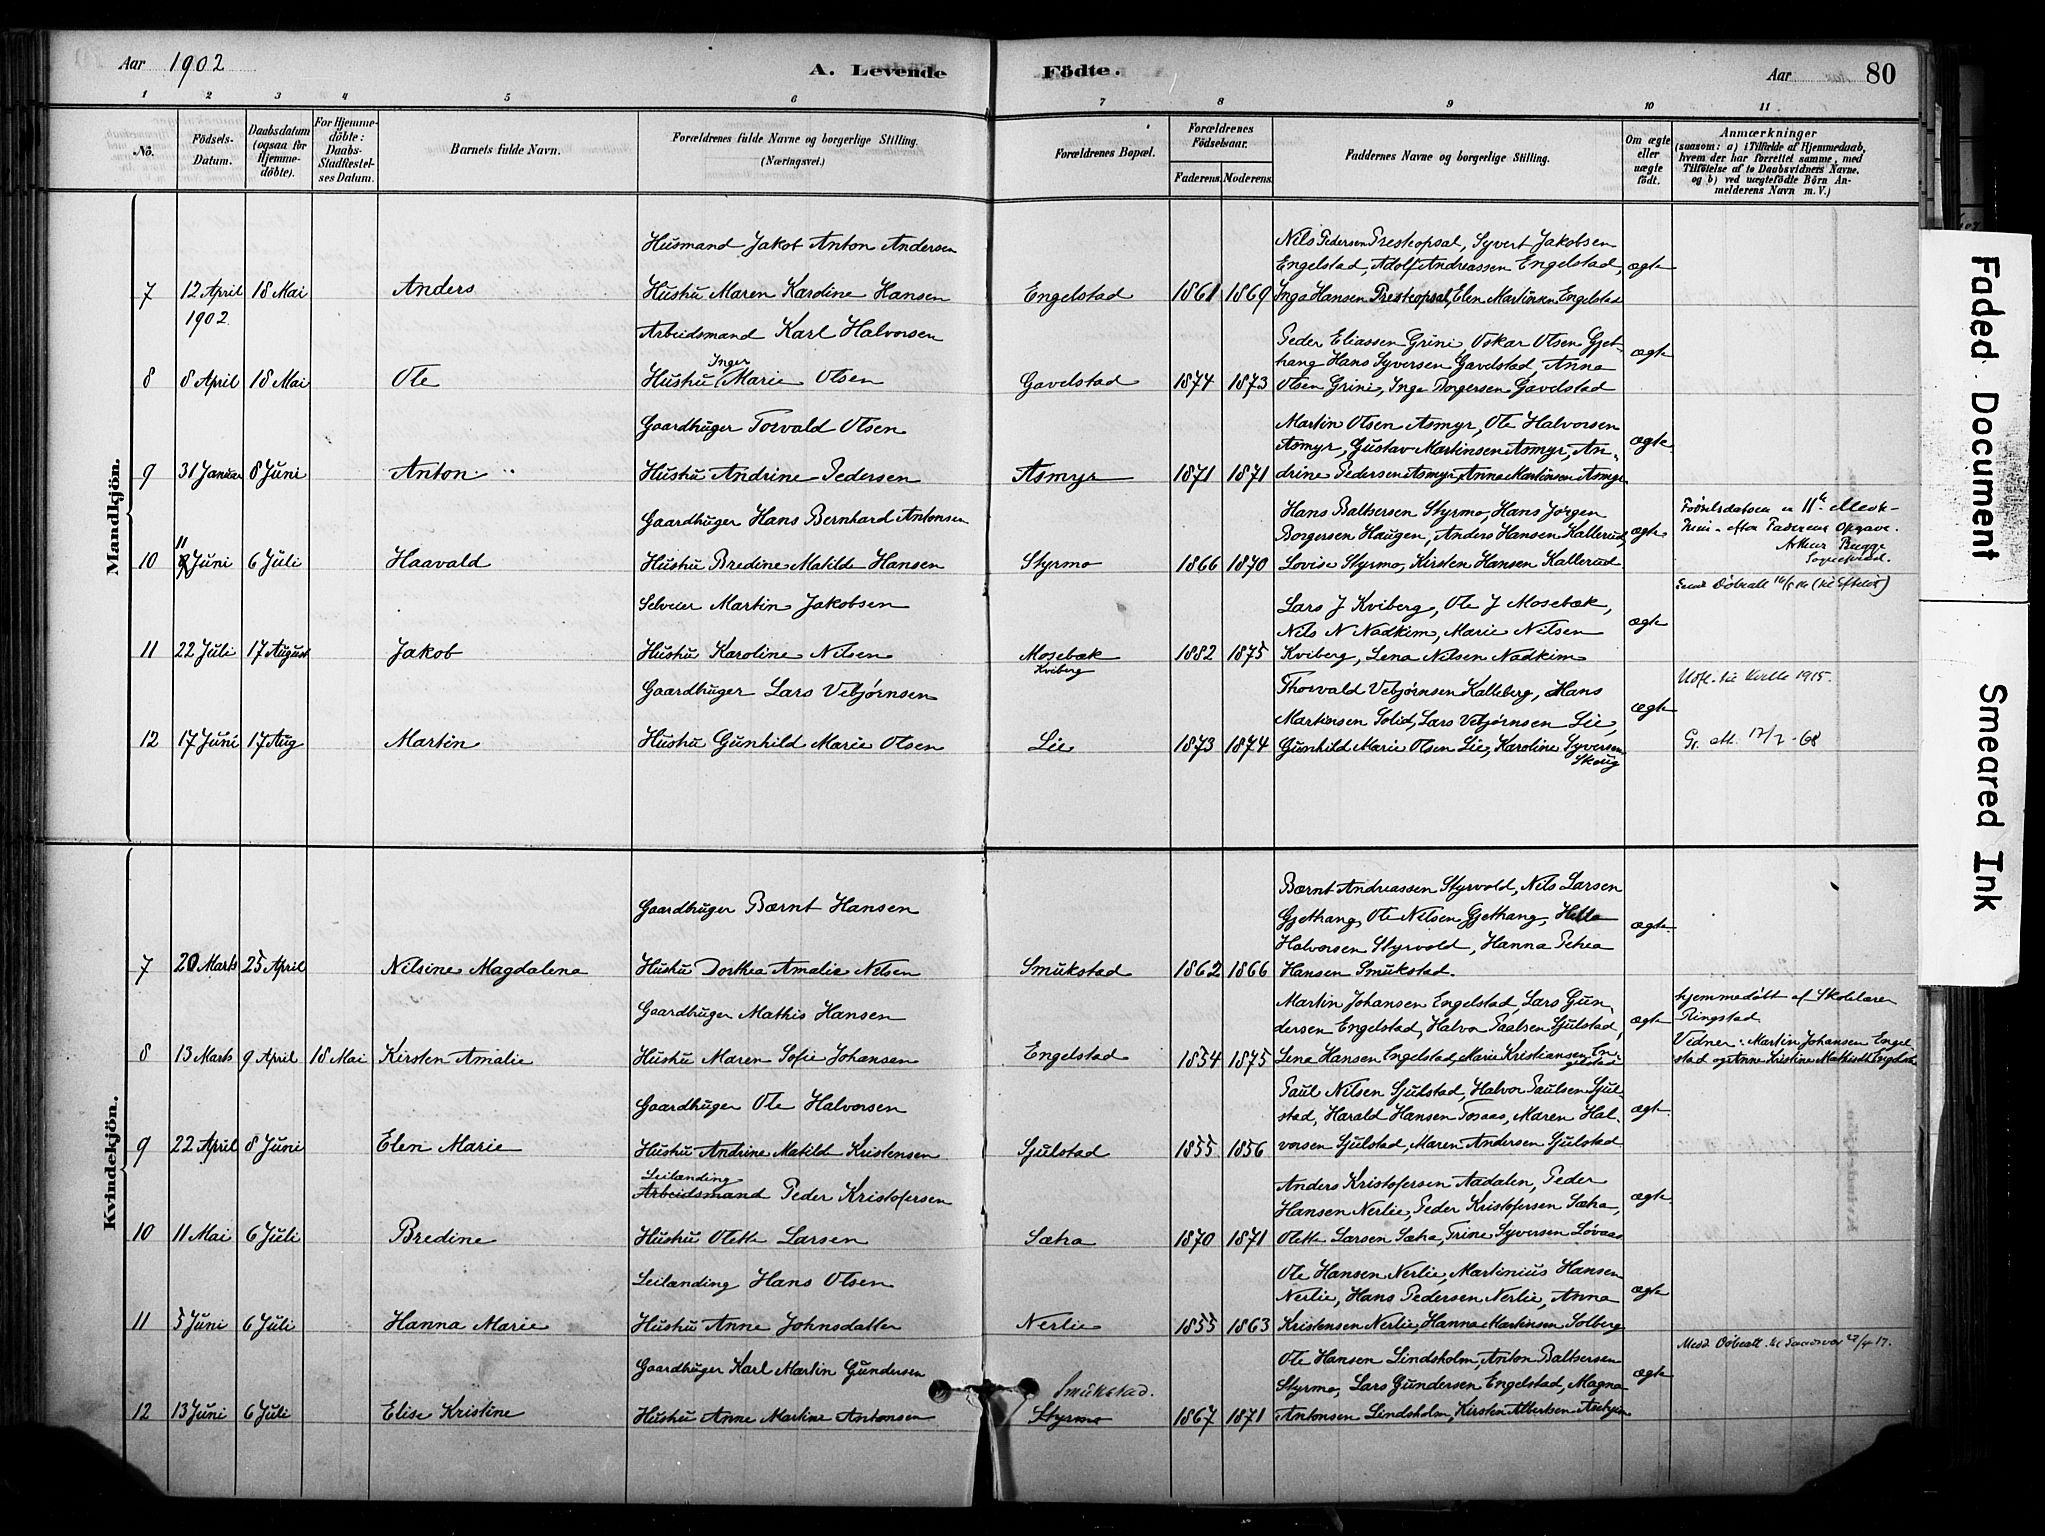 Aar 1902
A. Levende Födte.
Aar 80
1 2 3 4 5 6 7 8 9 10 11
No.
Födsels-Datum.
Daabsdatum (ogsaa for Hjemme-döbte).
For Hjemme-döbte: Daabs-Stadfestel-ses Datum.
Barnets fulde Navn.
Forældrenes fulde Navne og borgerlige Stilling. (Næringsvei.)
Forældrenes Bopæl.
Forældrenes Födselsaar.
Faderens. Moderens.
Faddernes Navne og borgerlige Stilling.
Om ægte eller uægte födt.
Anmærkninger (saasom: a) i Tilfælde af Hjemmedaab, hvem der har forrettet samme, med Tilföielse af to Daabsvidners Navne, og b) ved uægtefödte Börn An-melderens Navn m. V.)
Mandkjön.
Husmand Jakob Anton Andersen
Nils Pedersen Presteopsal, Syvert Jakobsen
Engelstad, Adolf Andreassen Engelstad, ægte
7 12 April 18 Mai Anders Hustru Maren Kardine Hansen Engelstad 1861 1869 Inga Hansen Presteopsal, Elen Martinsen Engelstad
1902.
Arbeidsmand Karl Halvorsen
Peder Eliassen Grini, Oskar Olsen Gjet-
hang Hans Syversen Gavelstad, Anna ægte
Inger
8 8 April 18 Mai Ole Hustru Marie Olsen Gavelstad 1874 1873 Olsen Grini, Inga Borgersen Gavelstad
Gaardbruger Torvald Olsen
Martin Olsen Asmyr, Ole Halvorsen
Asmyr, Gustav Martinsen Asmyr, An- ægte
9 31 Januar 8 Juni Anton Hustru Andrine Pedersen Asmyr 1871 1871 drine Pedersen Asmyr, Anna Martinsen Asmyr
Gaardbruger Hans Bernhard Antonsen
Hans Baltsersen Styrmo, Hans Jørgen
Borgersen Haugen, Anders Hansen Kallerud, ægte
11
10 Juni 6 Juli Haavald Hustru Bredine Matilde Hansen Styrmo 1866 1870 Lovise Styrmo, Kirsten Hansen Kallerud
Fødselsdatoen er 11te
Juni - efter Faderens Opgave.
Arthur Bugge
Sogneprest.
Selveier Martin Jakobsen
Lars J Kviberg, Ole J Mosebæk,
Nils N Nadkim, Marie Nilsen ægte
11 22 Juli 17 August Jakob Hustru Karoline Nilsen Mosebæk 1882 1875 Kviberg, Lena Nilsen Nadkim
Kviberg
Gaardbruger Lars Vebjørnsen
Thorvald Vebjørnsen Kalleberg, Hans
Martinsen Solid, Lars Vebjørnsen Lie, ægte
12 17 Juni 17 Aug Martin Hustru Gunhild Marie Olsen Lie 1873 1874 Gunhild Marie Olsen Lie, Karoline Syversen
Skoug
1915.
12/2-68
Kvindekjön.
Gaardbruger Bærnt Hansen
Bærnt Andreassen Styrvold, Nils Larsen
Gjethang, Ole Nilsen Gjethang, Hella ægte
Halvorsen Styrvold, Hanna Petrea
7 20 Marts 25 April Nilsine Magdalena Hustru Dorthea Amalie Nilsen Smukstad 1862 1866 Hansen Smukstad.
Gaardbruger Mathis Hansen
Martin Johansen Engelstad, Lars Gun-
dersen Engelstad, Halvor Paalsen Sjulstad, ægte
8 13 Marts 9 April 18 Mai Kirsten Amalie Hustru Maren Sofie Johansen Engelstad 1854 1875 Lena Hansen Engelstad, Marie Kristiansen En-
gelstad
hjemmedöbt af Skolelærer
Ringstad
Vidner: Martin Johansen Engel-
stad og Anne Kristine Mathisdtr Engelstad
Gaardbruger Ole Halvorsen
Paul Nilsen Sjulstad, Halvor Paulsen Sjul-
stad, Harald Hansen Foraas, Maren Hal- ægte
9 22 April 8 Juni Elen Marie Hustru Andrine Matilde Kristensen Sjulstad 1855 1856 vorsen Sjulstad, Maren Andersen Sjulstad
Leilænding
Arbeidsmand Peder Kristofersen
Anders Kristofersen Aadalen, Peder
Hansen Nerlie, Peder Kristofersen Sætra, ægte
10 11 Mai 6 Juli Bredine Hustru Olette Larsen Sætra 1870 1871 Olette Larsen Sætra, Trine Syversen Løvaas
Leilænding Hans Olsen
Ole Hansen Nerlie, Martinius Hansen
Nerlie, Hans Pedersen Nerlie, Anna ægte
11 5 Juni 6 Juli Hanna Marie Hustru Anne Johnsdatter Nerlie 1855 1863 Kristensen Nerlie, Hanna Martinsen Solberg
Gaardbruger Karl Martin Gundersen
Ole Hansen Lindsholm, Anton Baltsersen
Smukstad. Styrmo, Lars Gundersen Engelstad, Magna ægte
12 13 Juni 6 Juli Elise Kristine Hustru Anne Martine Antonsen Styrmo 1867 1871 Antonsen Lindsholm, Kirsten Albertsen Askjum
Faded Document
Smeared Ink